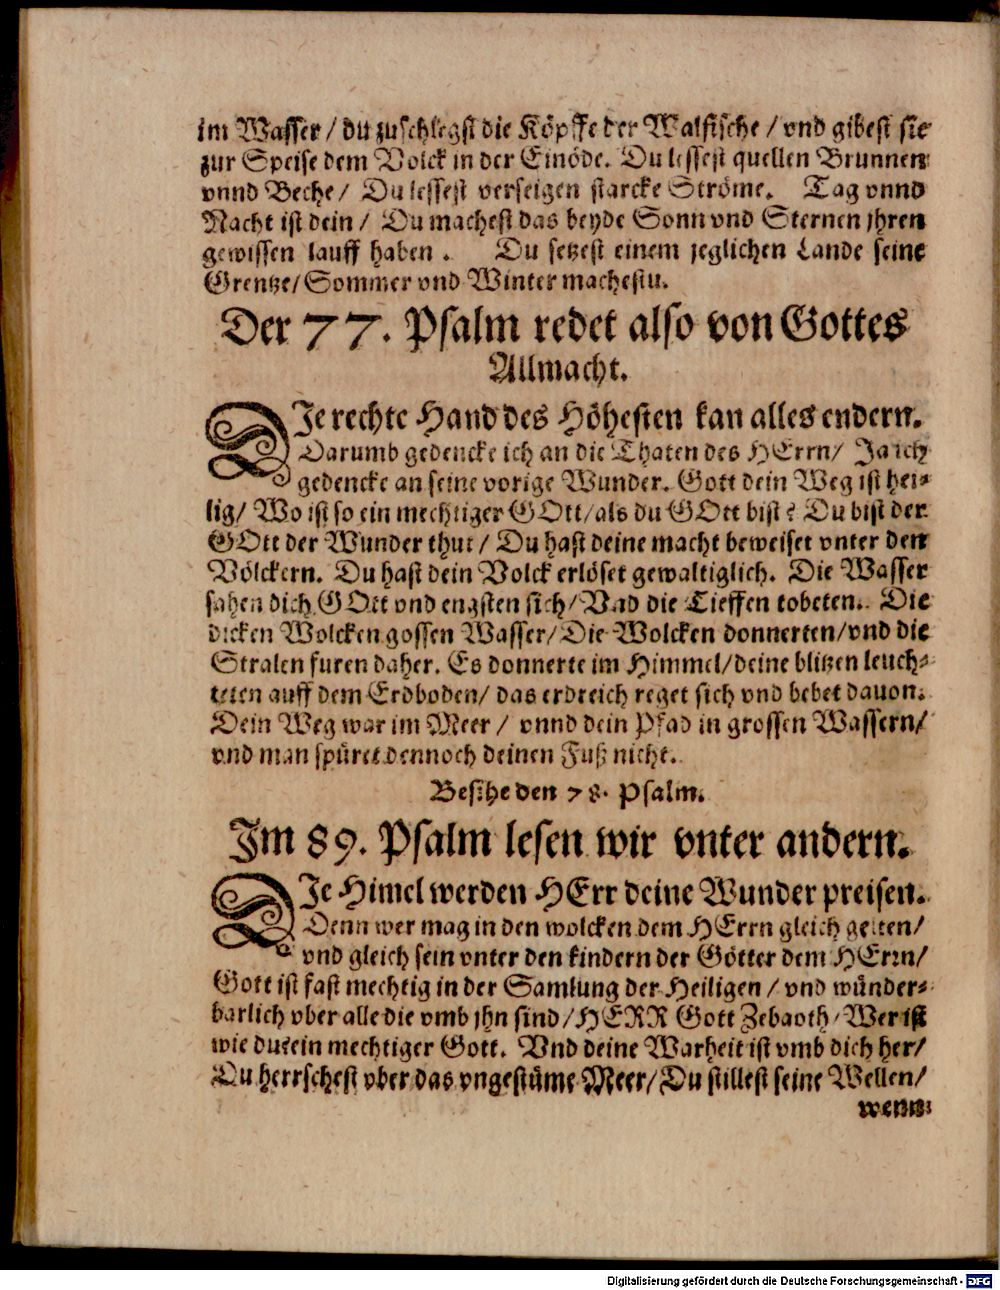 im Wasser / du zuschlegst die Köpffe der Walfische / vnd gibest sie
zur Speise dem Volck in der Einöde. Du lessest quellen Brunnen
vnnd Beche / Du lessest verseigen starcke Ströme. Tag vnnd
Nacht ist dein / Du machest das beyde Sonn vnd Sternen jhren
gewissen lauff haben . Du setzest einem jeglichen Lande seine
Grentze / Sommer vnd Winter machestu.
Der 77. Psalm redet also von Gottes
Allmacht.
DJe rechte Hand des Höhesten kan alles endern.
Darumb gedencke ich an die Thaten des HErrn / Ja ich
gedencke an seine vorige Wunder. Gott dein Weg ist hei-
lig / Wo ist so ein mechtiger GOtt / als du GOtt bist? Du bist der
GOtt der Wunder thut / Du hast deine macht beweiset vnter den
Völckern. Du hast dein Volck erlöset gewaltiglich. Die Wasser
sahen dich GOtt vnd engsten sich / Vnd die Tieffen tobeten. Die
dicken Wolcken gossen Wasser / Die Wolcken donnerten / vnd die
Stralen furen daher. Es donnerte im Himmel / deine blitzen leuch-
teten auff dem Erdboden / das erdreich reget sich vnd bebet dauon.
Dein Weg war im Meer / vnnd dein Pfad in grossen Wassern /
vnd man spüret dennoch deinen Fuß nicht.
Besihe den 78. Psalm.
Jm 89. Psalm lesen wir vnter andern.
DJe Himel werden HErr deine Wunder preisen.
Denn wer mag in den wolcken dem HErrn gleich gelten /
vnd gleich sein vnter den kindern der Götter dem HErrn /
Gott ist fast mechtig in der Samlung der Heiligen / vnd wünder-
barlich vber alle die vmb jhn sind / HERR Gott Zebaoth / Wer ist
wie du ein mechtiger Gott. Vnd deine Warheit ist vmb dich her /
Du herrschest vber das vngestüme Meer / Du stillest seine Wellen /
wenn
Digitalisierung gefördert durch die Deutsche Forschungsgemeinschaft - DFG